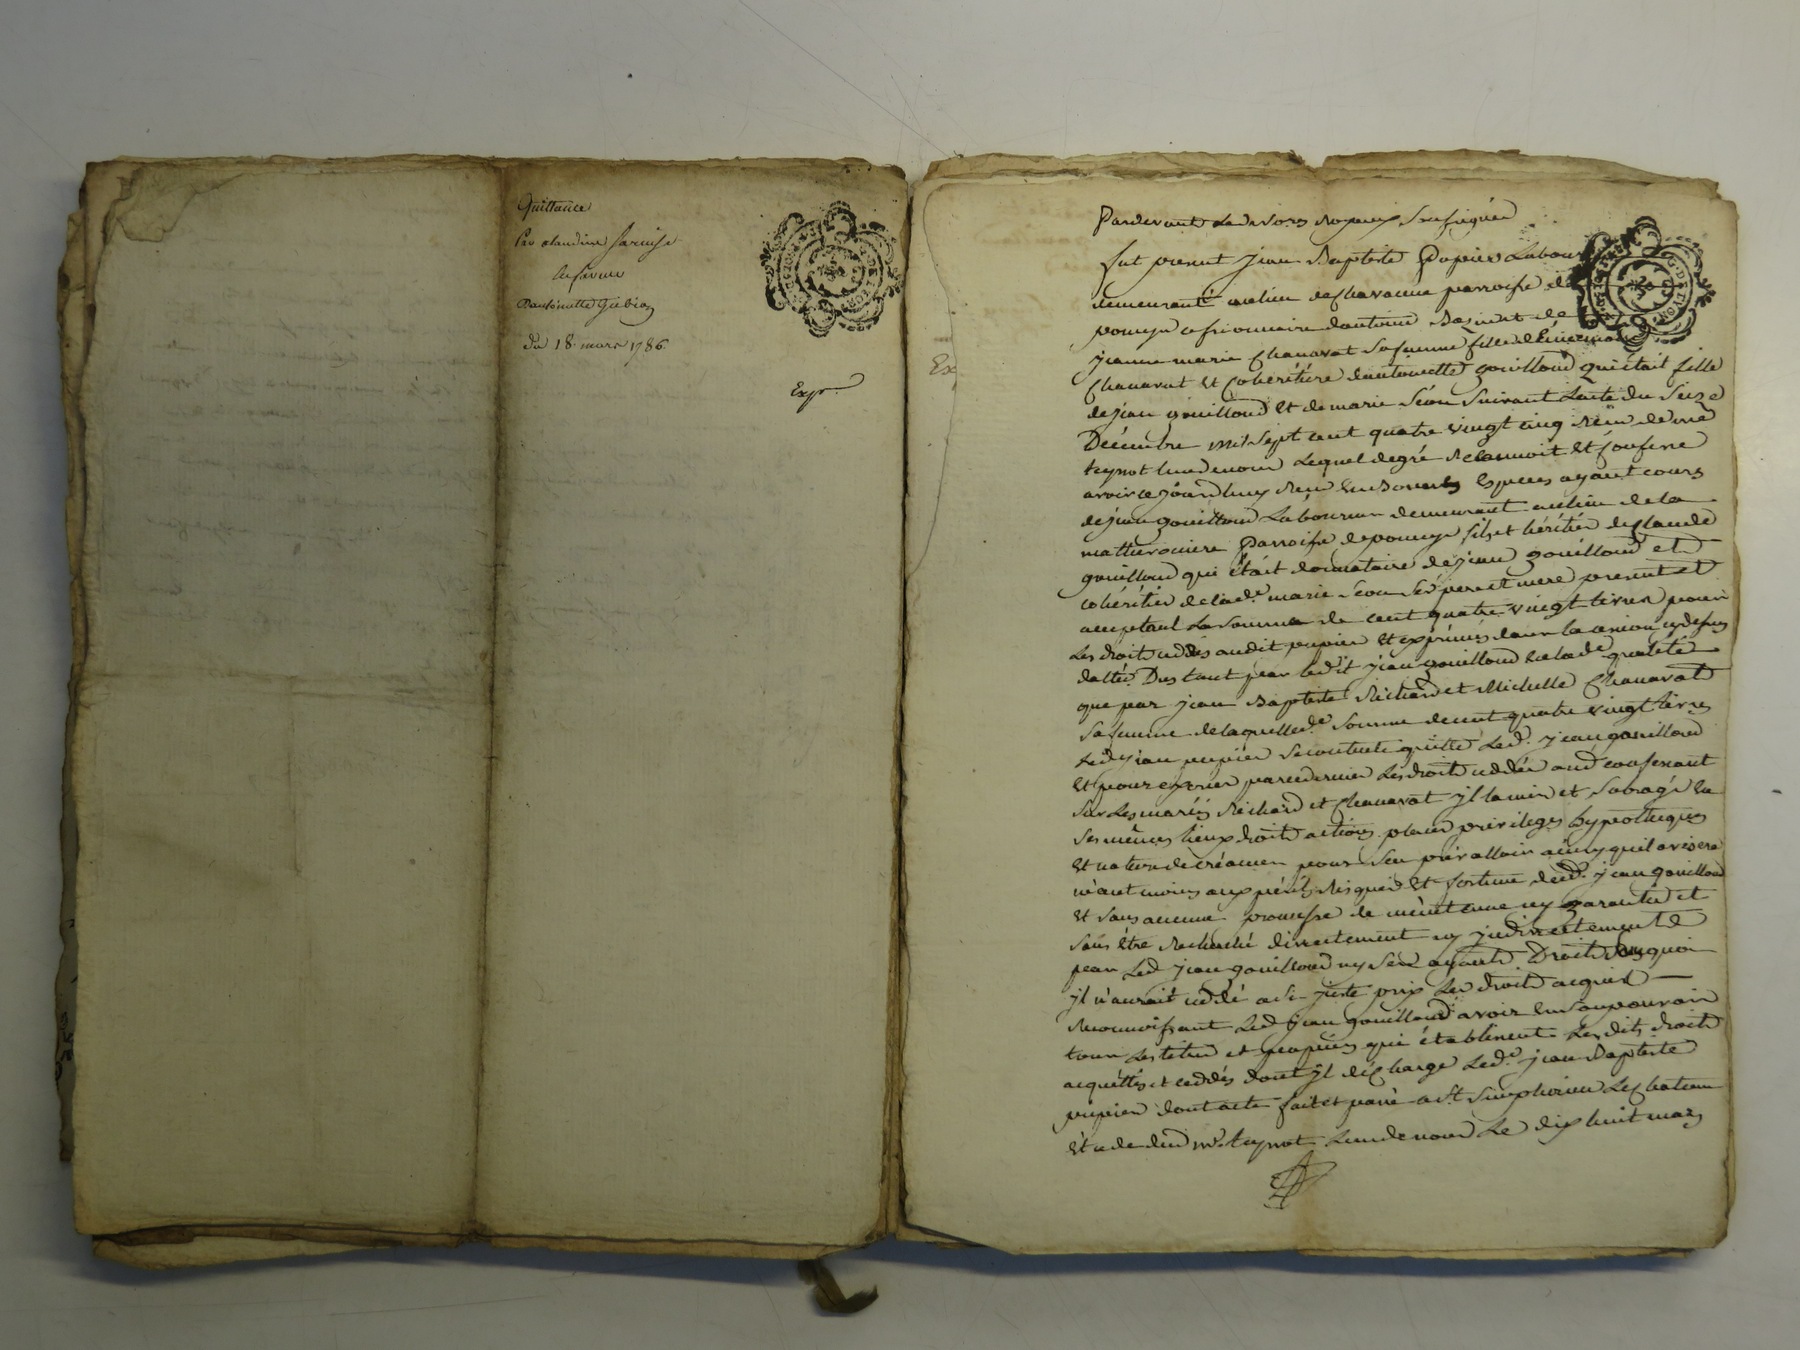 Quittance
Par claudine
a
antoinette Gubian
du 18. mars 1786.
Expe.
Ex
Pardevant Les No.res Royaux Soussignés
fut present jean Baptiste Pupier Labour
demeurant au lieu de Chavanne parroisse de
pomeys cessionnaire d'antoine Bazin et de
jeanne marie Chanavat sa femme fille d'Etiennette
Chanavat et Cohéritiere d'antoinette gouilloud qui était fille
de jean gouilloud et de marie Séon Suivant L'acte du Seize
Décembre mil Sept cent quatre vingt cinq Reçu de me
teynot L'un de nous Lequel de gré Reconnoit et Confesse
avoir ce jourd'huy Reçu en Bonnes Especes ayant cours
de jean gouilloud Laboureur demeurant au lieu de la
parroisse de pomeys fils et héritier de Claude
gouilloud qui était donnataire de jean gouilloud et
cohéritier de lad.e marie Séon Ses pere et mere present et
acceptant La Somme de cent quatre vingt livres pour
Les droits cedés audit pupier et exprimés dans la cession cy dessus
dattée Dus tant par ledit jean gouilloud en lad.e qualité
que par jean Baptiste Richard et Michelle Chanavat
sa femme de laquelle d.e Somme de cent quatre vingt livres
Led. jean pupier Se contente quitte Led. jean gouilloud
Et pour exercer par ce dernier Les droits cedés aud confessant
Sur Les mariés Richard et Chanavat jl la mis et Subrogé en
Ses mêmes lieux droits actions places privileges hypotheques
et nature de créances pour S'en prévalloir ainsy qu'il avisera
néantmoins aux périls Risques et fortune dud. jean gouilloud
et Sans aucune promesse de maintenue ny garantie et
Sans être Recherché directement ny jndirectement
par Led jean gouilloud ny Ses ayants Droits Sans quoi
jl n'auroit cedé a Si juste prix Les droits acquis
Reconnoissant Led jean gouilloud avoir en Son pouvoir
tous Les titres et papiers qui établissent Les dits droits
acquittés et cedés dont jl décharge Led.t jean Baptiste
pupier dont acte fait et passé a St. Simphorien Le Chateau
Etude dud me. teynot L'un de nous Le dix huit mars